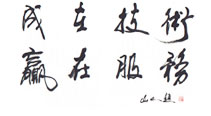 成在技術
贏在服務